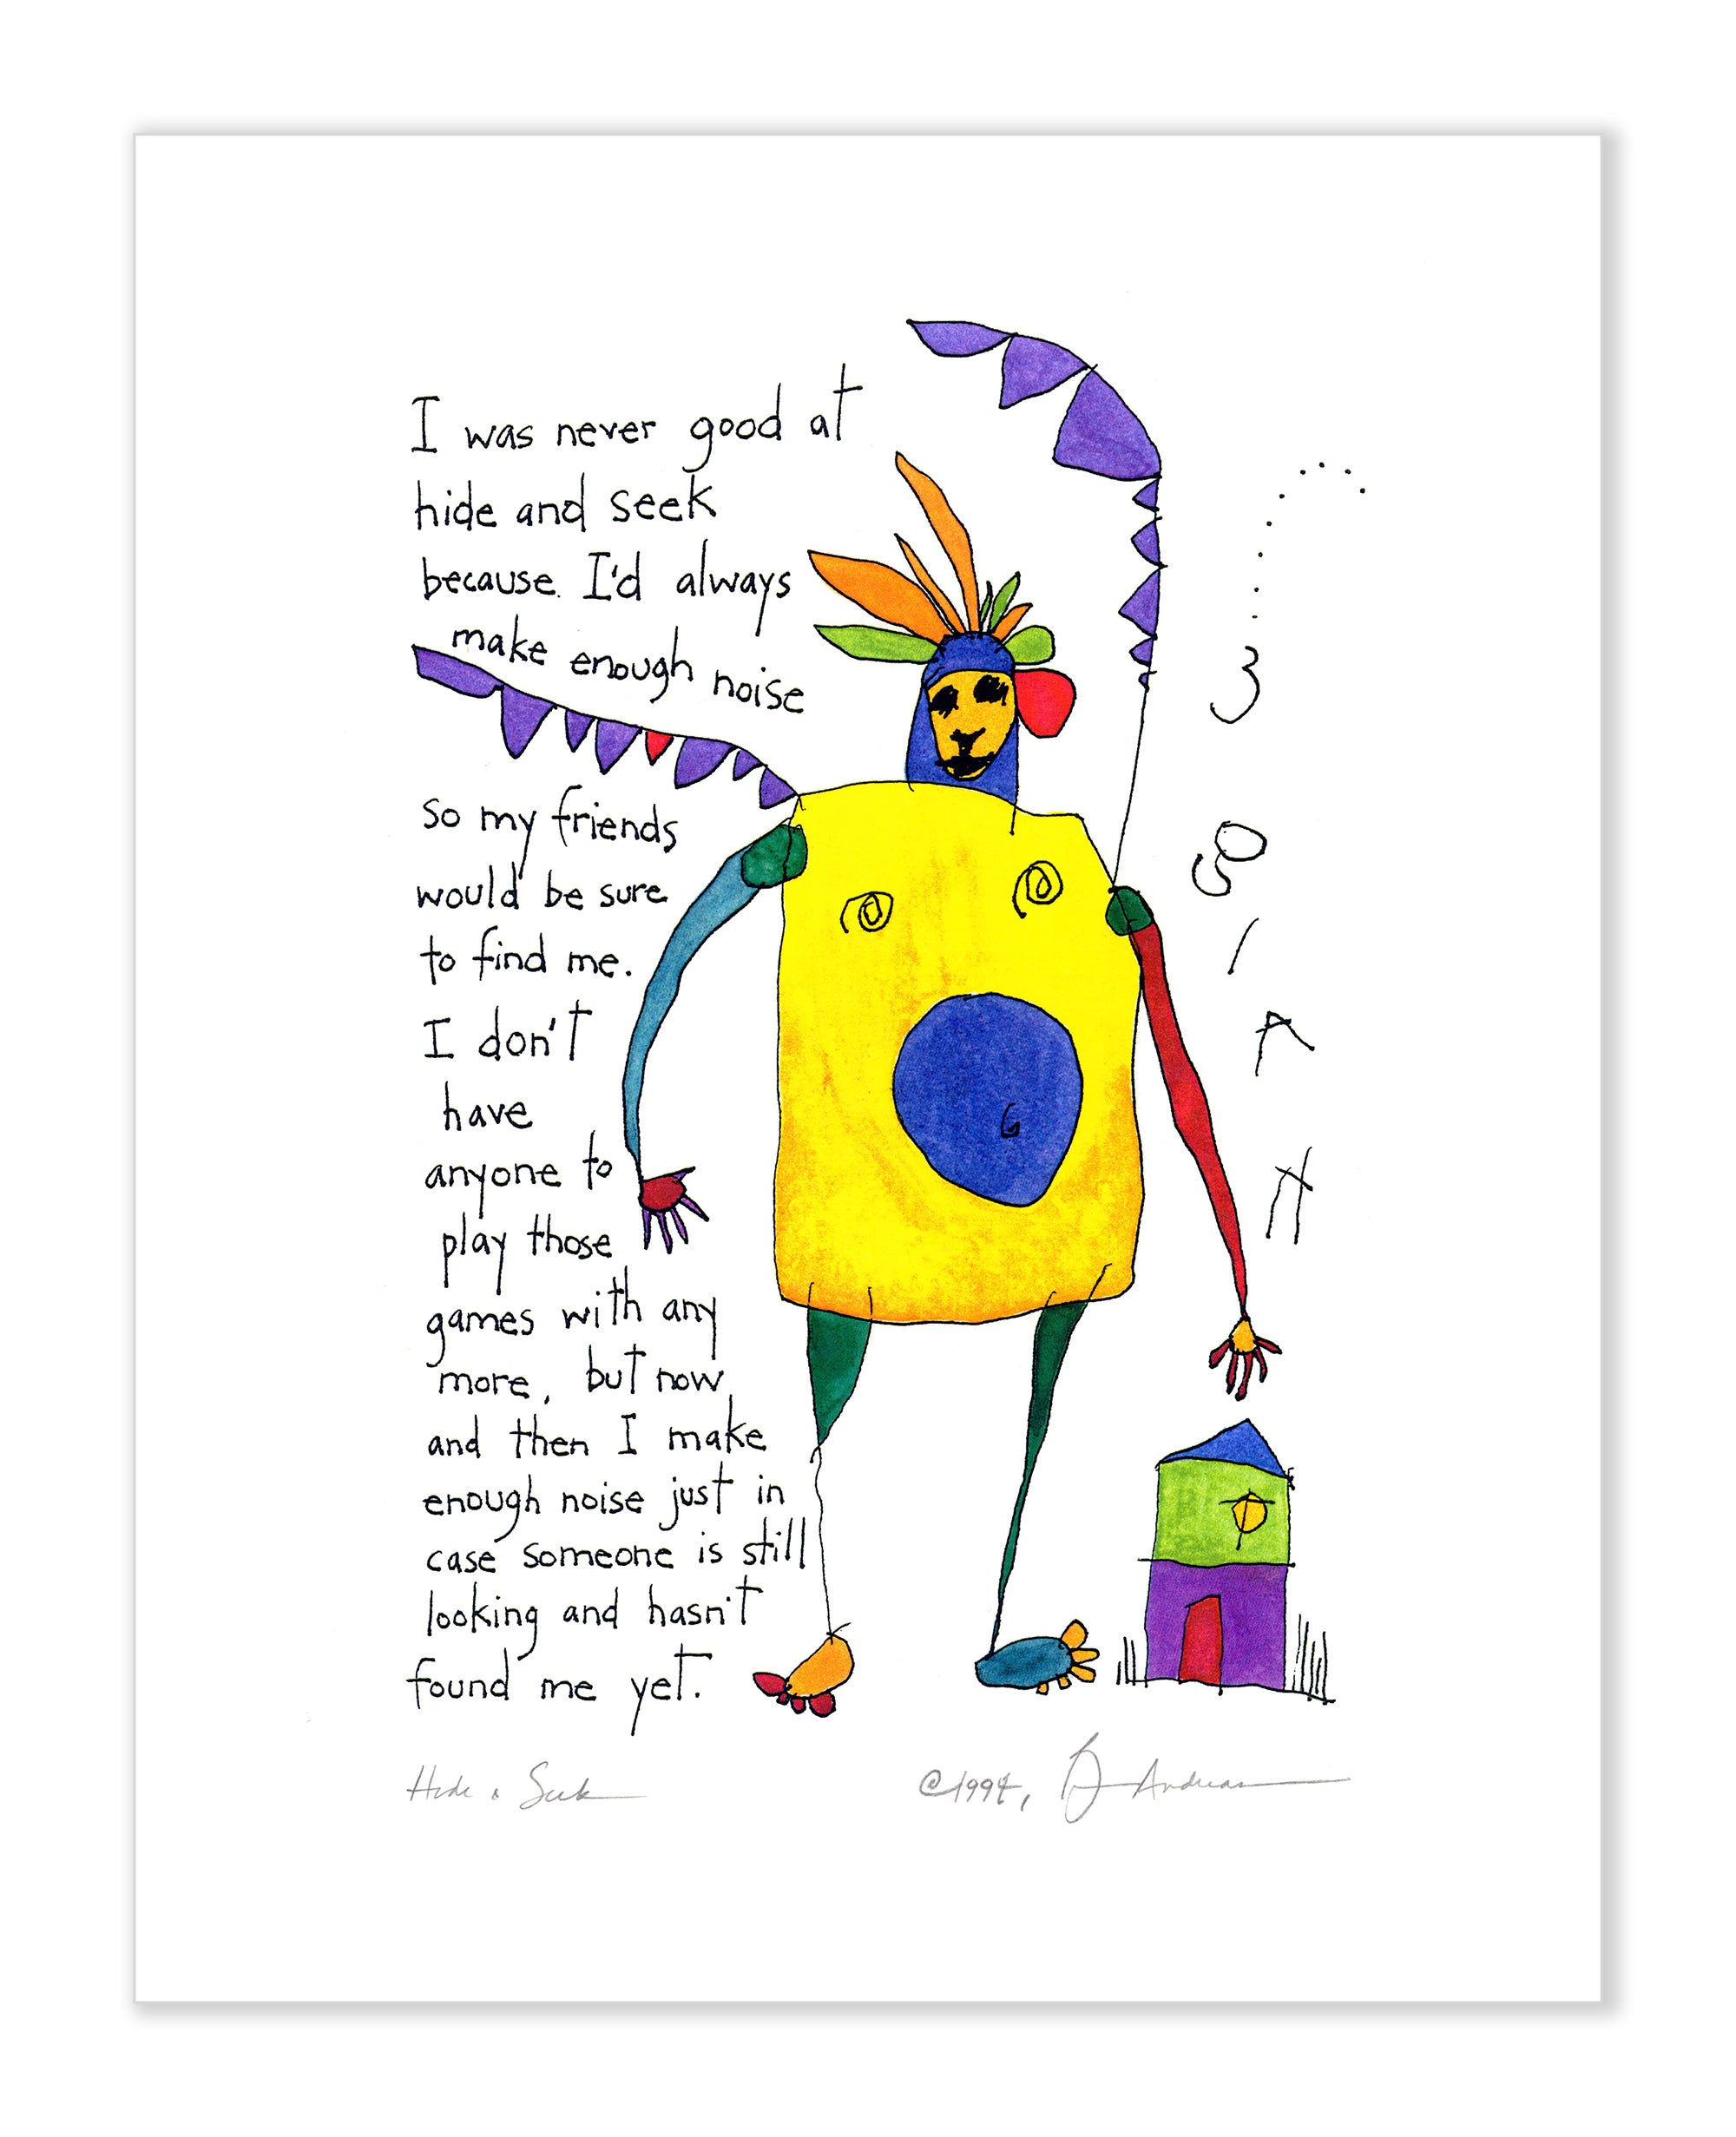 I was never good at
hide and seek
because I'd always
make enough noise
so my friends
would be sure
to find me.
I don't
have
anyone to
play those
games with any
more, but now
and then I make
enough noise just in
case someone is still
looking and hasn't
found me yet.
Hide & Seek
©1994, Andreas